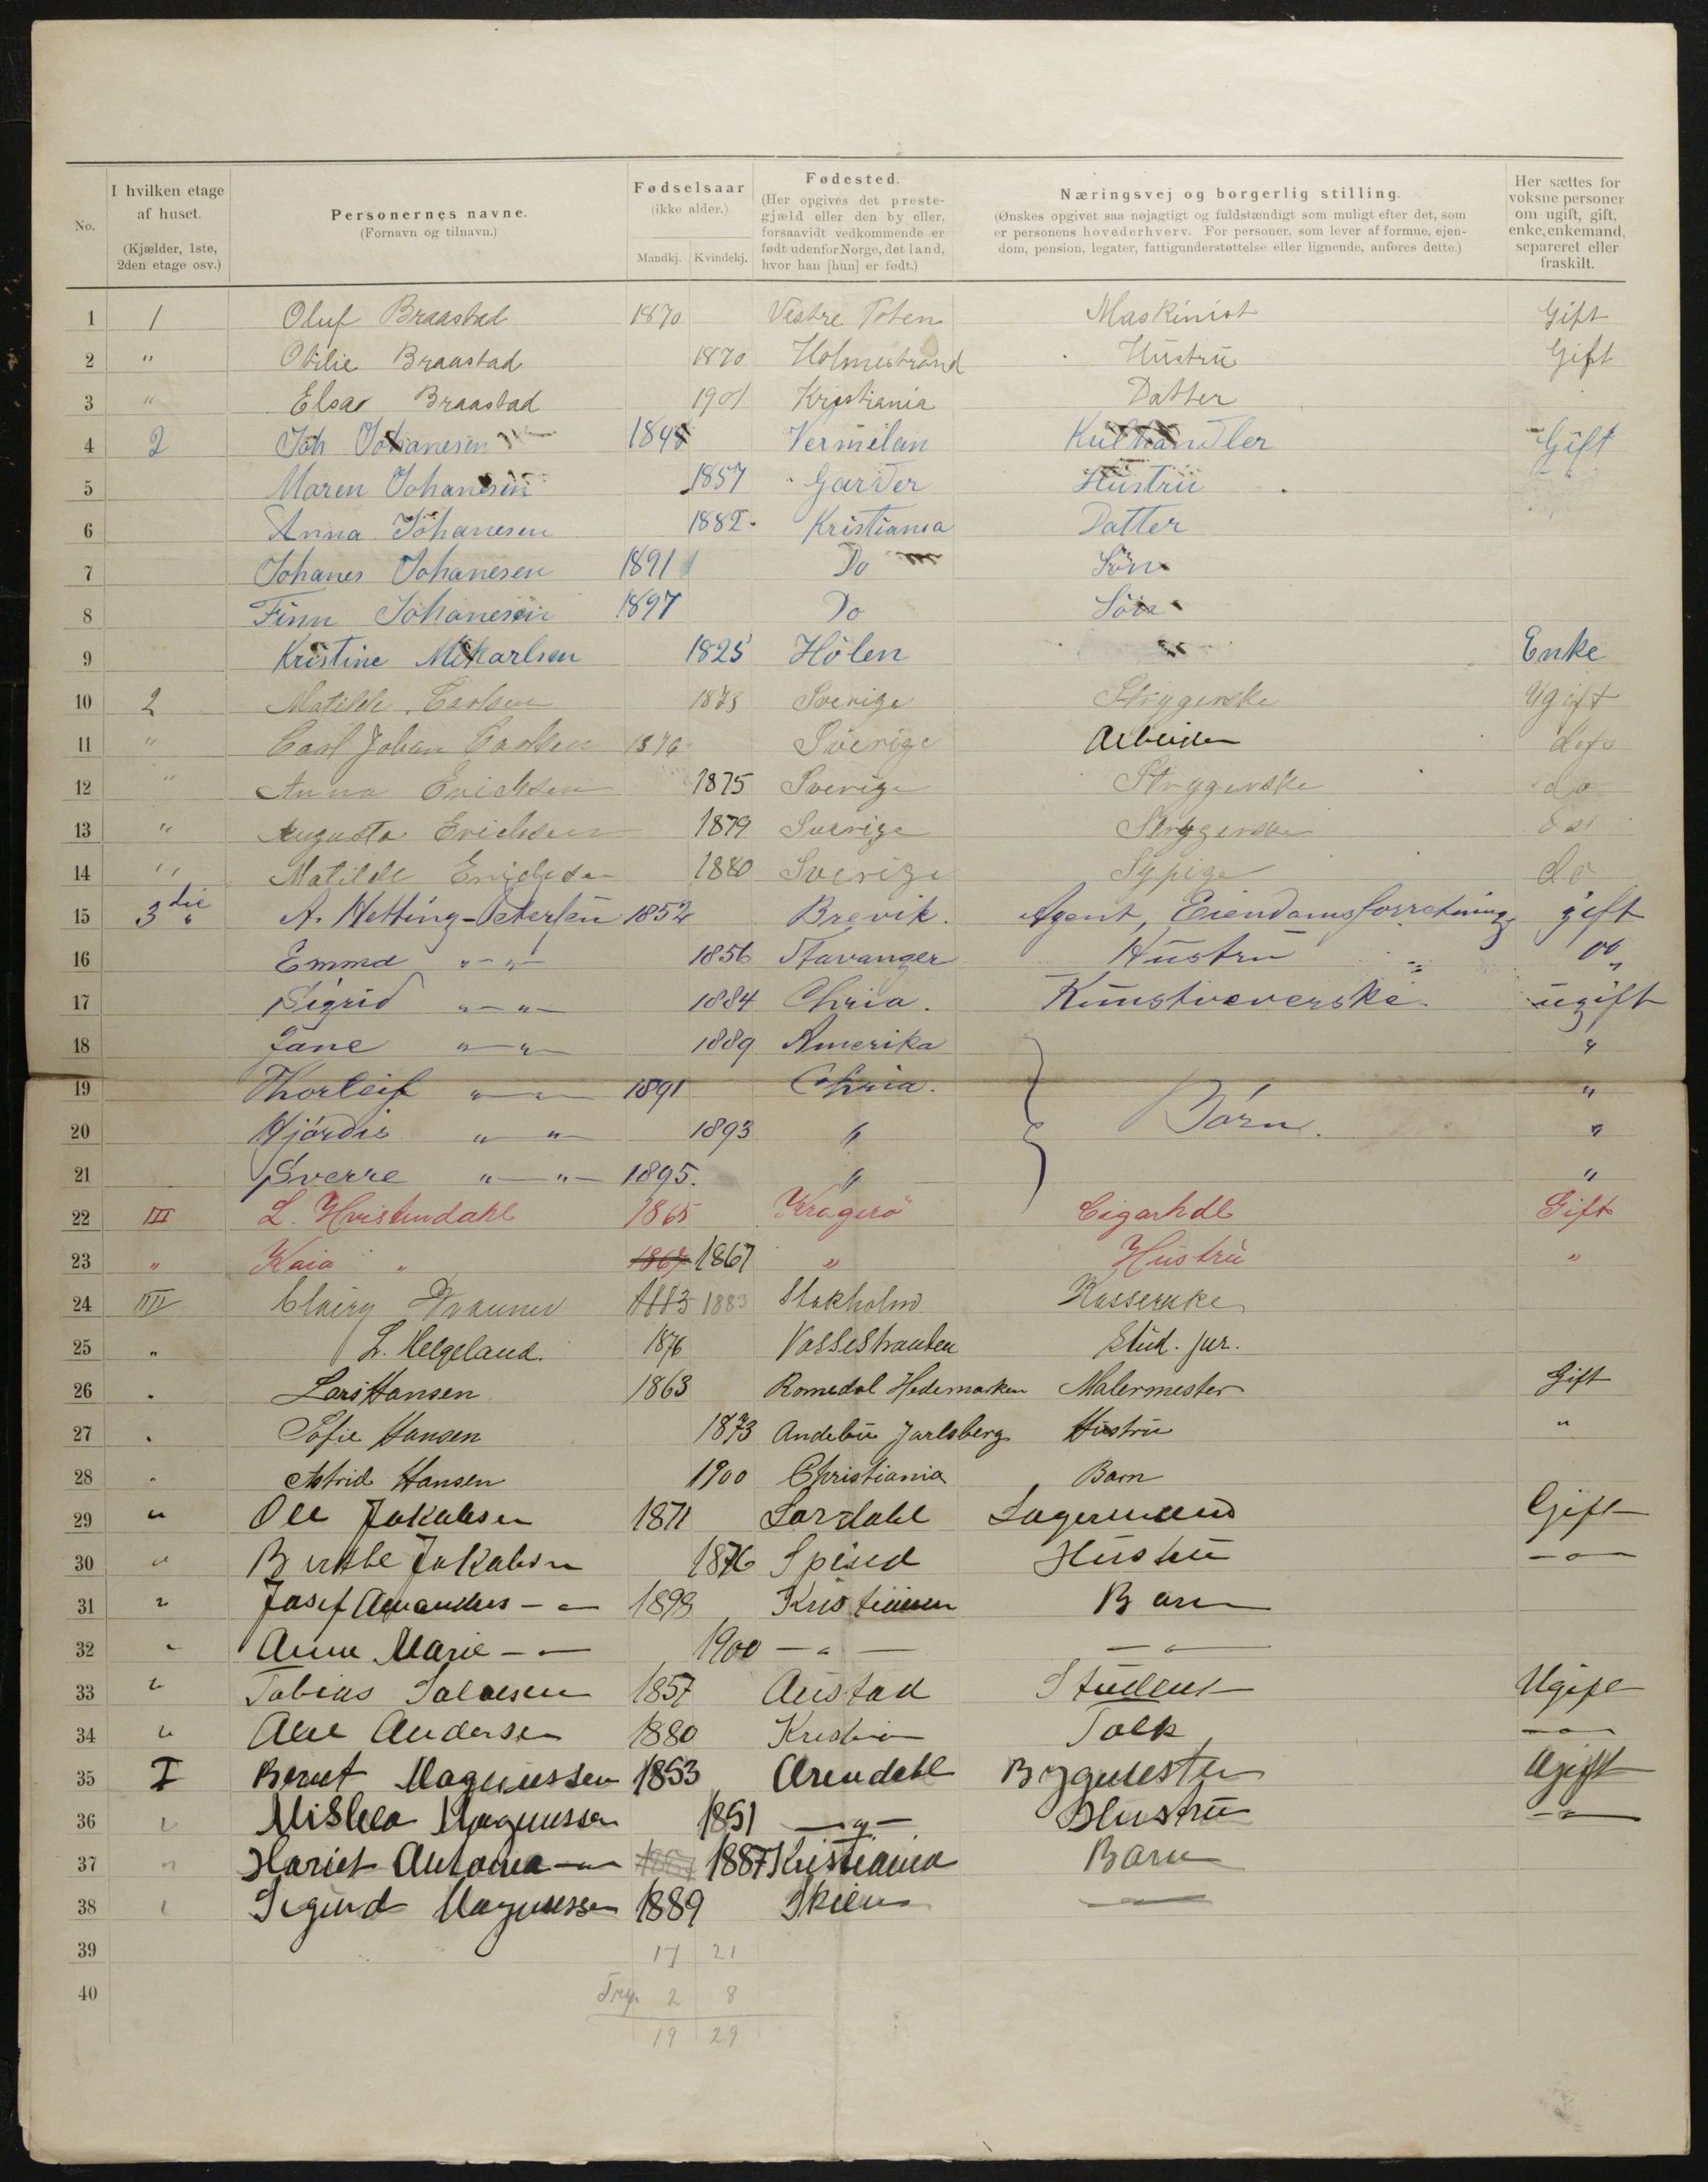 No.
I hvilken etage af huset. (Kjælder, 1ste, 2den etage osv.)
Personernes navne. (Fornavn og tilnavn.)
Fødselsaar (ikke alder.) Mandkj. Kvindekj.
Fødested. (Her opgives det prestegjæld eller den by eller, forsaavidt vedkommende er født udenfor Norge, det land, hvor han [hun] er født.)
Næringsvej og borgerlig stilling. (Ønskes opgivet saa nøjagtigt og fuldstændigt som muligt efter det, som er personens hovederhverv. For personer, som lever af formue, ejendom, pension, legater, fattigunderstøttelse eller lignende, anføres dette.)
Her sættes for voksne personer om ugift, gift, enke, enkemand, separeret eller fraskilt.
1 1 Oluf Braastad 1870 Vestre Toten Maskinist Gift
2 " Otilie Braastad 1870 Holmestrand Hustru Gift
3 " Elsa Braastad 1901 Kristiania Datter
4 2 Joh Johanesen 1848 Vermelan Kulhandler Gift
5 Maren Johanesen 1857 Garder Hustru
6 Anna Johanesen 1882 Kristiania Datter
7 Johanes Johanesen 1891 Do Søn
8 Finn Johanesen 1897 Do Søn
9 Kristine Mikarlsen 1825 Hölen Enke
10 2 Matilde Carlsen 1873 Sverige Strygerske Ugift
11 " Carl Johan Carlsen 1876 Sverige Arbeider do
12 " Anna Erichsen 1875 Sverige Strygerske do
13 " Augusta Erichsen 1879 Sverige Strygerske do
14 " Matilde Erichsen 1880 Sverige Sypige do
15 3die " A. Netting-Petersen 1852 Brevik. Agent, Eiendomsforretning gift
16 Emma " - " - 1856 Stavanger Hustru "
17 Sigrid " - " - 1884 Chria. Kunstvæverske ugift
18 Jane " - " - 1889 Amerika "
19 Thorleif " - " - 1891 Chria. "
20 Hjördis " - " - 1893 " Börn. "
21 Sverre " - " - 1895. " "
22 III L. Hvistendahl 1865 Kragerö Cigarhdl Gift
23 " Kaia " 1867 1867 " Hustru "
24 IIII 1883 1883 Stokholm Kasserske
25 " L. Helgeland. 1876 Vossestranden Stud. jur.
26 " Lars Hansen 1863 Romedal Hedemarken Malermester Gift
27 " Sofie Hansen 1873 Andebu Jarlsberg Hustru "
28 " Astrid Hansen 1900 Christiania Barn
29 " Ole Jakobsen 1871 Lardahl Lagermand Gift
30 " Berthe Jakobsen 1876 Spind Hustru - " -
31 " Josef Amandus - " - 1898 Kristiania Barn
32 " Anna Marie - " - 1900 - " - - " -
33 " Tobias Salvesen 1857 Austad Student Ugift
34 " Andersen 1880 Kristiania Tolk - " -
35 I Bernt Magnussen 1853 Arendahl Bygmester Gift
36 " Magnussen 1851 - " - Hustru - " -
37 " Hariet Antonia - " - 1887 Kristiania Barn
38 " Sigurd Magnussen 1889 Skien - " -
39 17 21
40 2 8
19 29